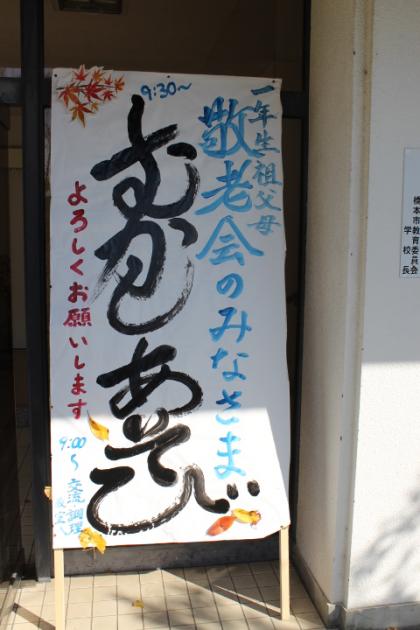 一年生祖父母
敬老会のみなさま
9:30～
むかしあそび
よろしくお願いします
9:00～交流調理
橋本市教育委員会
学校長